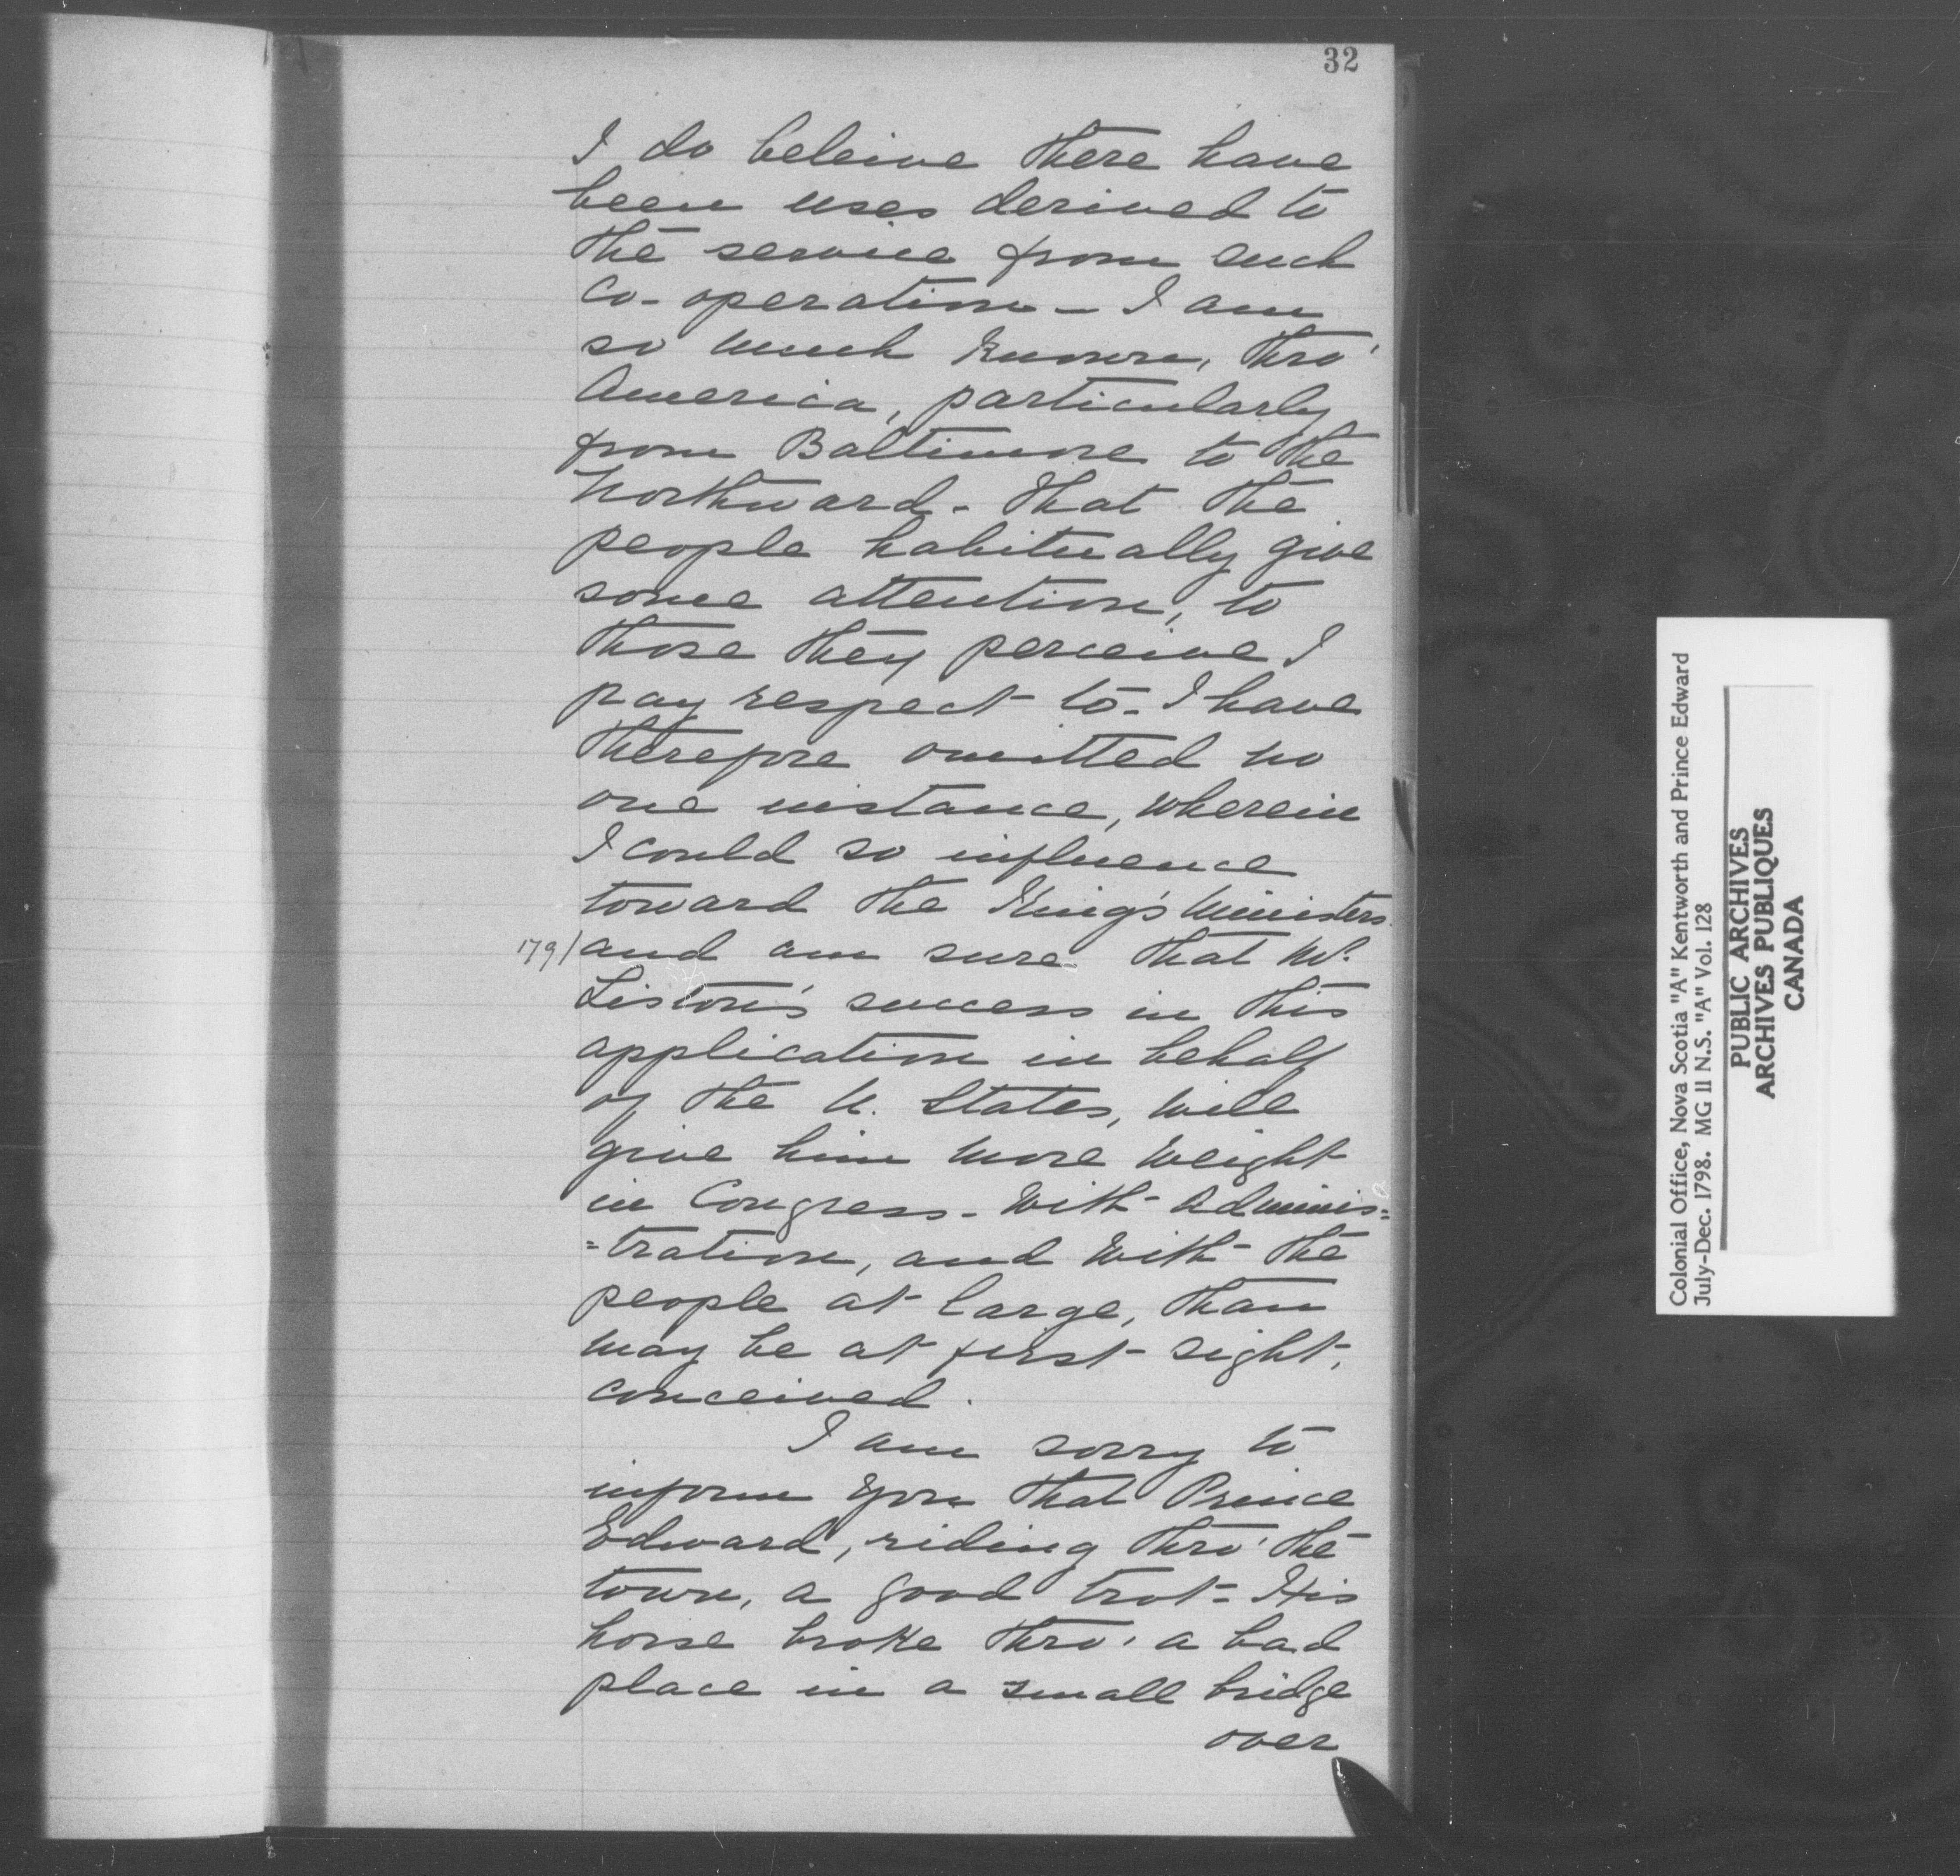 32
I do beleive there have
been uses derived to
the service from such
co-operation - I am
so much known, thro'
America, particularly
from Baltimore to the
Northward - that the
people habitually give
some attention, to
those they perceive I
pay respect to - I have
therefore omitted no
one instance, wherein
I could so influence
toward the King's Ministers
179/ and am sure that Mr.
Liston's success in this
application in behalf
of the U. States, will
give him more weight
in Congress - with Adminis=
=tration, and with the
people at large, than
may be at first sight,
conceived.
I am sorry to
inform you that Prince
Edward, riding thro' the
town, a good trot - His
horse broke thro' a bad
place in a small bridge
over
Colonial Office, Nova Scotia "A" Kentworth and Prince Edward
July-Dec. 1798. MG 11 N.S. "A" Vol. 128
PUBLIC ARCHIVES
ARCHIVES PUBLIQUES
CANADA